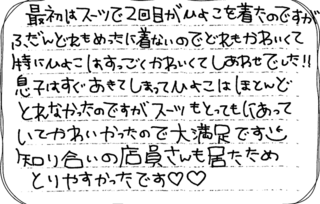 最初はスーツで2回目がひよこを着たのですが
ふだんどれもめったに着ないのでどれもかわいくて
特にひよこはすっごくかわいくてしあわせでした!!
息子はすぐあきてしまってひよこはほとんど
とれなかったのですがスーツもとってもにあって
いてかわいかったので大満足です
知り合いの店員さんも居たため
とりやすかったです♡♡